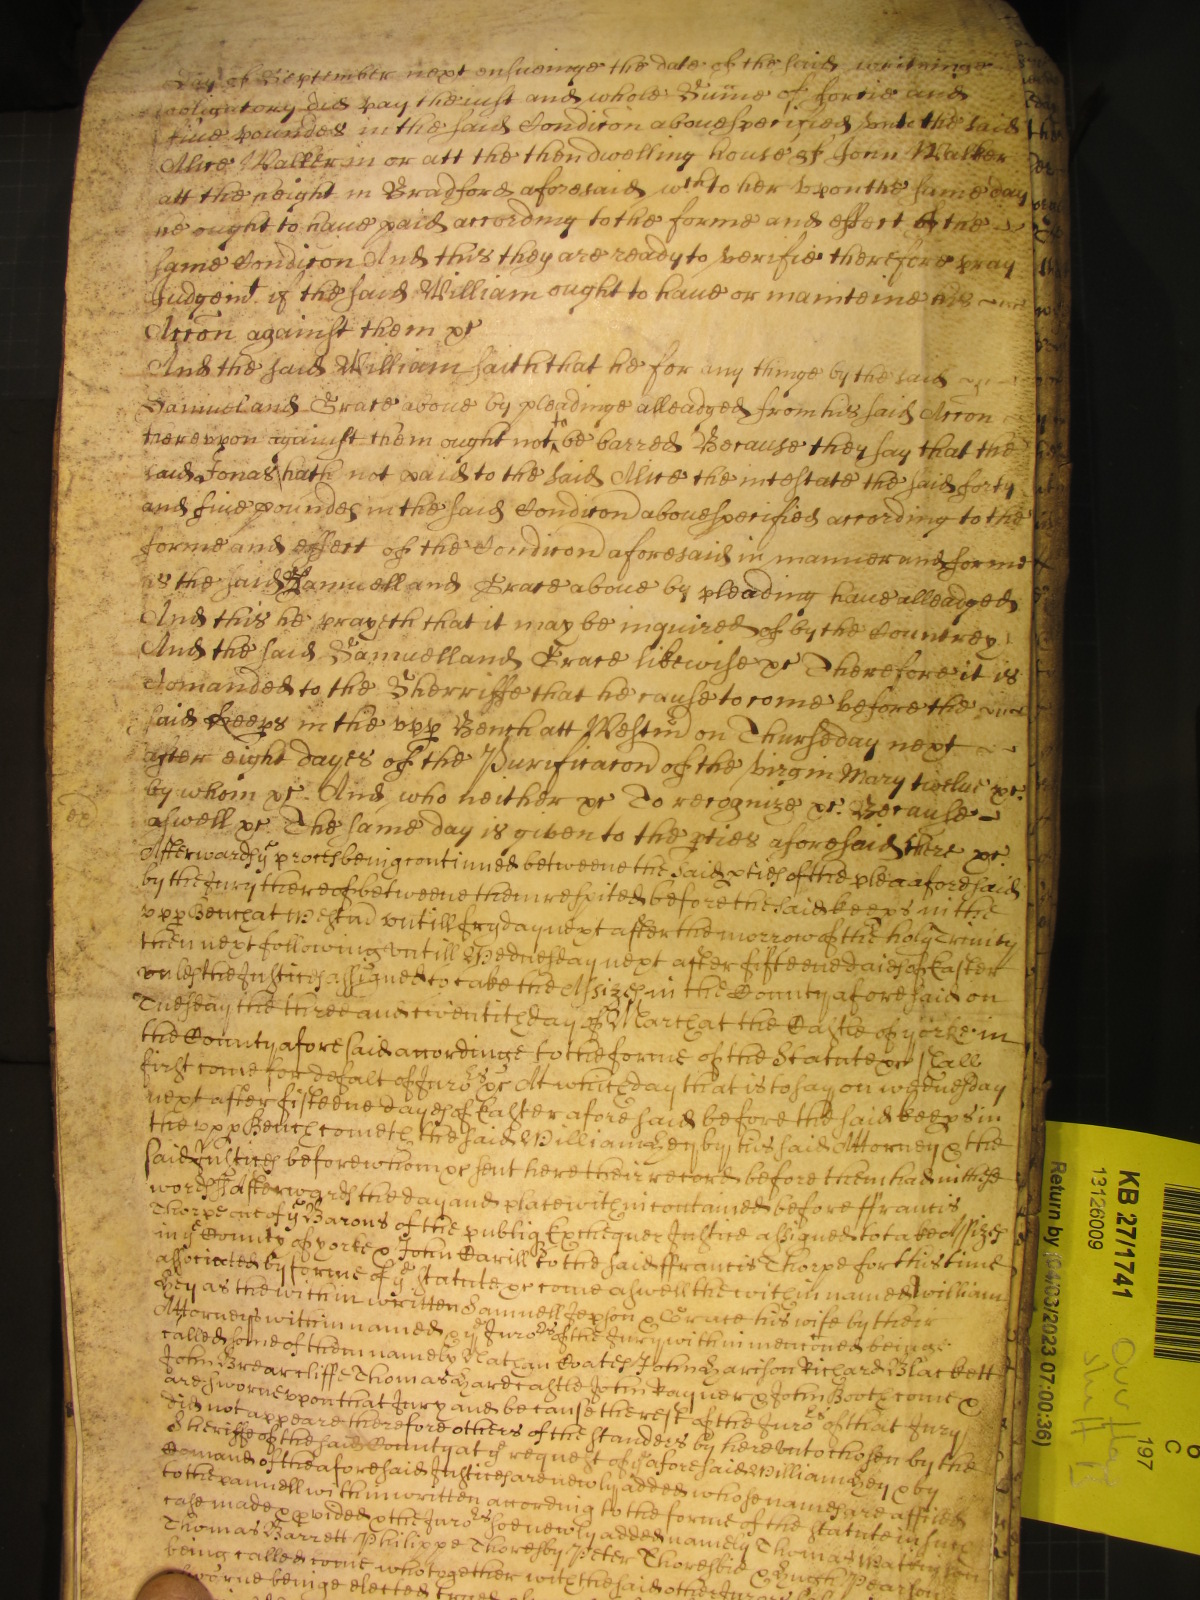 day of September next ensueinge the date of the said writeinge
obligatory did pay the just and whole Sume of fortie and
five poundes in the said Condicon abovespecified unto the said
Alice Walker in or att the then dwelling house of John Walker
att the height in Bradford aforesaid wch to her upon the same day
he ought to have paid according to the forme and effect of the
same Condicon And this they are ready to verifie therefore pray
Judgemt if the said William ought to have or mainteine his
Accon against them &c
And the said William saith that he for any thinge by the said
Samuel and Grace above by pleadinge alleadged from his said Accon
thereupon against them ought not to be barred Because they say that the
said Jonas hath not paid to the said Alice the intestate the said forty
and five poundes in the said Condicon abovespecified according to the
forme and effect of the Condicon aforesaid in manner and forme
as the said Samuell and Grace above by pleading have alleadged
And this he prayeth that it may be inquired of by the Countrey
And the said Samuell and Grace likewise &c Therefore it is
Comanded to the Sherriffe that he cause to come before the
said keeps in the upp Bench att Westm on Thurseday next
after eight dayes of the Purificacon of the virgin Mary twelve &c
by whom &c And who neither &c To recognize &c Because
aswell &c The same day is given to the pties aforesaid there &c
Afterwards ye proces being continued betweene the said pties of the plea aforesaid
by the Jury thereof betweene them respited before the said keeps in the
upp Bench at Westm untill fryday next after the morrow of the holy Trinity
then next following untill Wednesday next after fifteene daies of Easter
unles the Justices assigned to take the Assizes in the County aforesaid on
Tuesday the three and twentith day of March at the Castle of yorke in
the County aforesaid accordinge to the forme of the Statute &c shall
first come for defalt of Juro rs &c At which day that is to say on wednesday
next after fifteene dayes of Easter aforesaid before the said keeps in
the upp Bench cometh the said William Hey by his said Attorney & the
said Justices before whom &c sent here their record before them had in these
words Afterwards the day and place within contained before ffrancis
Thorpe one of ye Barons of the publiq Exchequer Justice assigned to take Assizes
in ye County of yorke & John Carill to the said ffrancis Thorpe for this time
associated by forme of ye statute &c come aswell the within named William
Hey as the within written Samuell Jepson & Grace his wife by their
Attorneys within named & ye Juro rs of the Jury within menconed beinge
called some of them namely Nathan Coates John Harison Richard Blackett
John Brearcliffe Thomas Hardcastle John Rayner & John Booth come &
are sworne upon that Jury and because the rest of the Juro rs of that Jury
did not appeare therefore others of the standers by hereunto chosen by the
Sheriffe of the said County at ye request of ye aforesaid William Hey & by
Comand of the aforesaid Justices are newly added whose names are affiled
to the pannell within written according to the forme of the statute in such
case made & pvided & the Juro rs soe newly added namely Thomas
Thomas Barrett Philippe Thoresby Peter Thoresbie & Hugh Pearson
being called come who together with the said other Juro rs
sworne beinge elected tryed
KB 27/1741
13126009
Return by (04/03/2023 07:00:36)
C
197